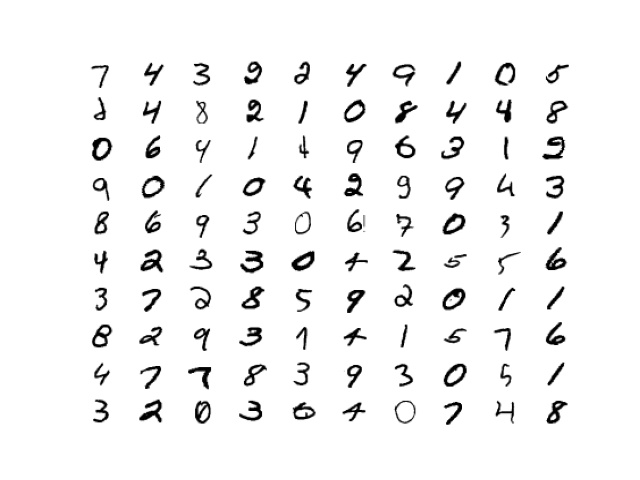 7 4 3 2 2 4 9 1 0 5
4 8 2 1 0 8 4 4 8
0 6 4 1 4 9 6 3 1 2
9 0 1 0 4 2 9 9 4 3
8 6 9 3 0 6 7 0 3 1
4 2 3 3 0 4 2 5 5 6
3 7 2 8 5 9 2 0 1 1
8 2 9 3 1 4 1 5 7 6
4 7 7 8 3 9 3 0 5 1
3 2 0 3 6 4 0 7 4 8